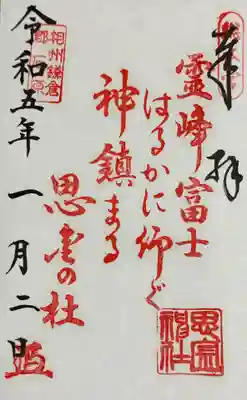 奉拝
霊峰富士
はるかに仰ぐ
神鎮まる
思金の杜
令和五年一月二日
相州鎌倉
思金神社